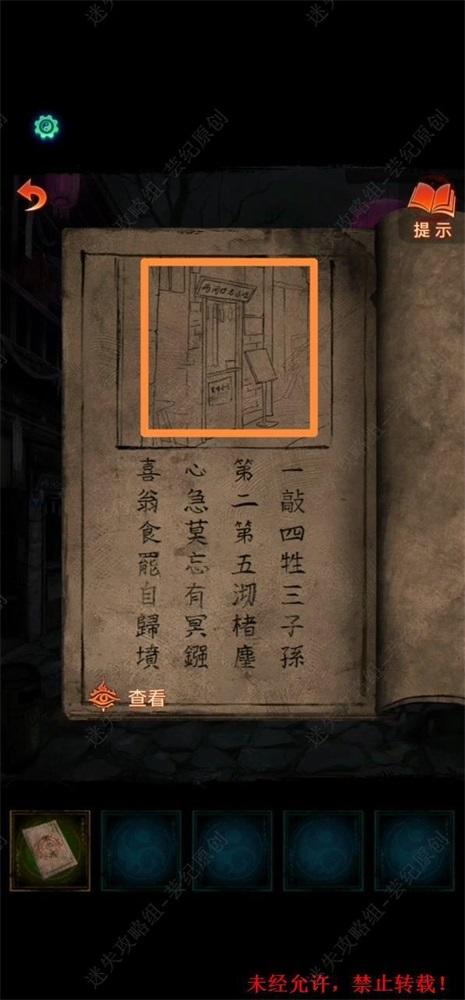 提示
一敲四牲三子孫
第二第五沏楮塵
心急莫忘有冥鏹
喜翁食罷自歸墳
查看
迷失攻略组-芸纪原创
未经允许，禁止转载！